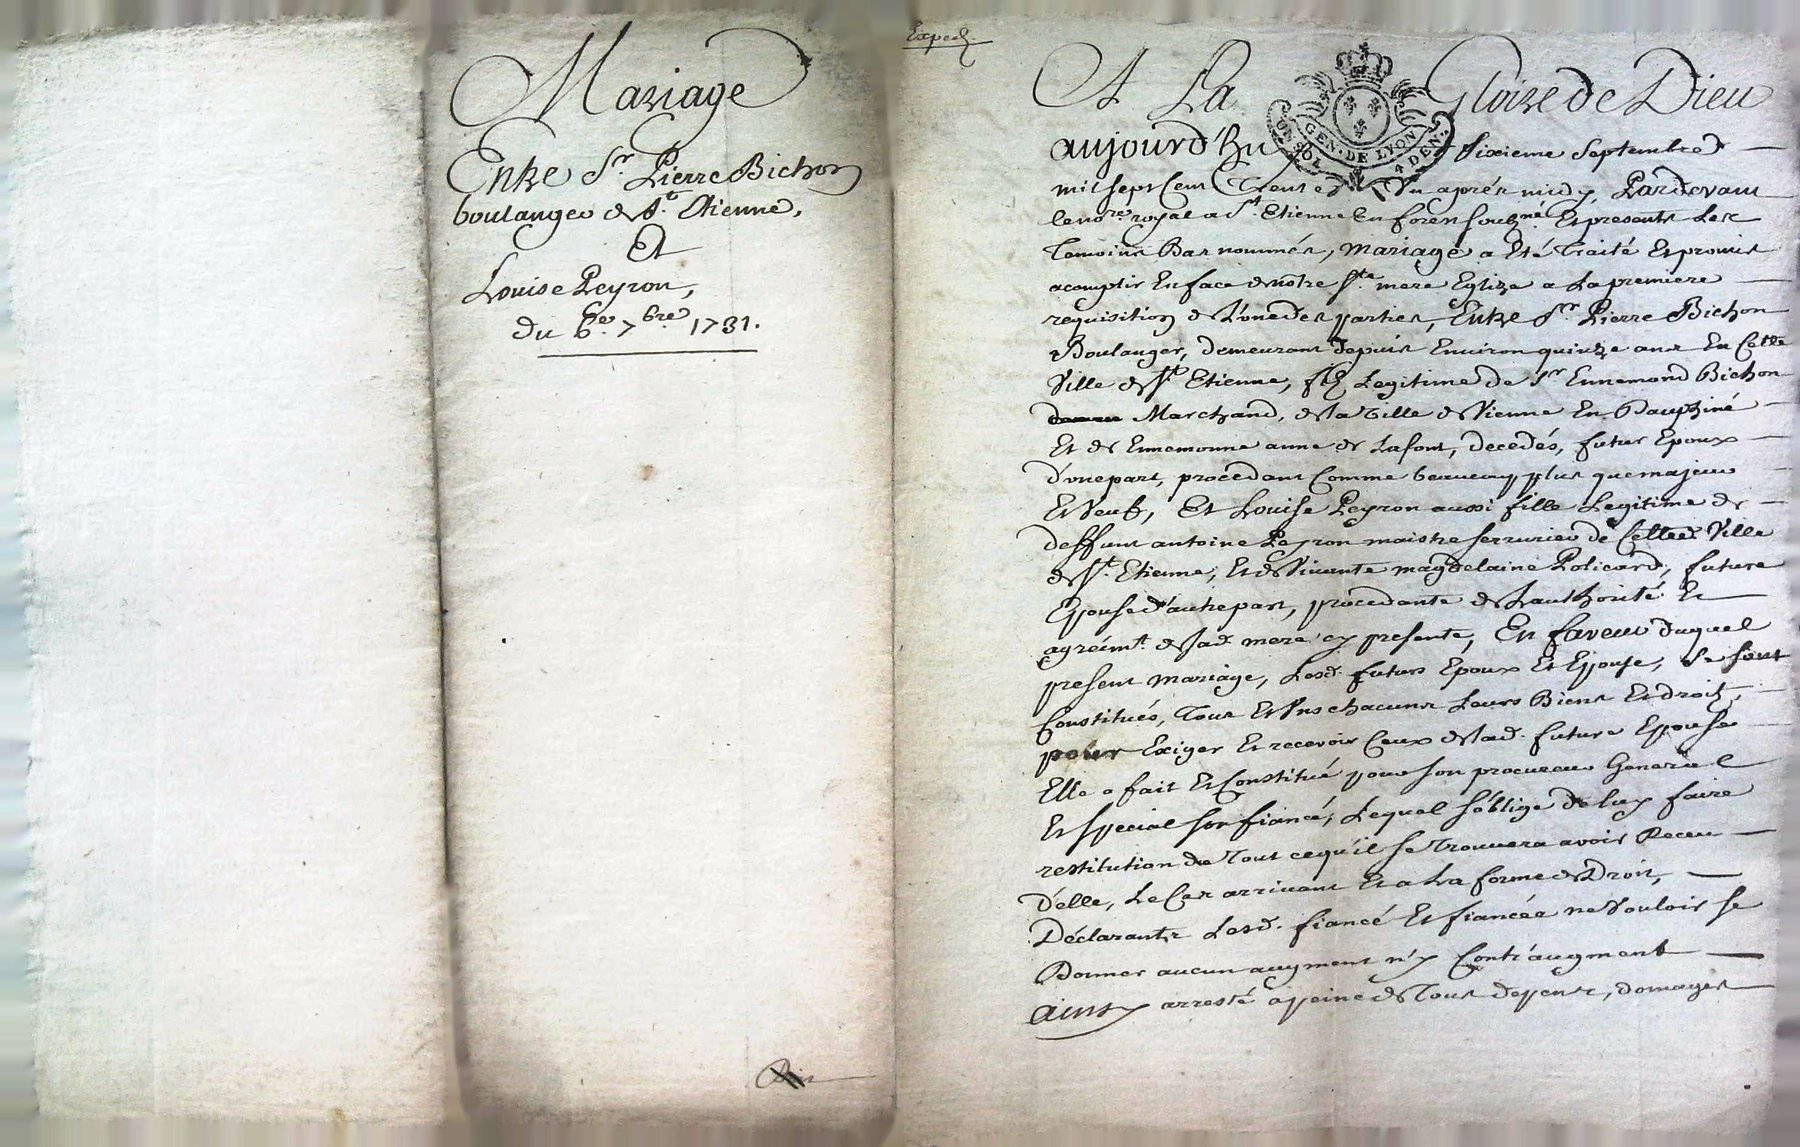 Mariage
Entre Sr. Pierre Bichon
boulanger de St. Etienne,
Et
Louise Peyron,
du 6e. 7bre 1731.
Exped.
A La Gloire de Dieu
GEN. DE LYON
UN SOL 4 DEN.
aujourd'huy sixieme Septembre
mil sept Cent Trente Un aprés midy, Pardevant
le nore. royal a St. Etienne En forest souzné. Et presents Les
Temoins Bas nommés, Mariage a Eté Traité Et promis
acomplir En face de nôtre Ste. mere Eglize a La premiere
requisition de L'une des parties, Entre Sr. Pierre Bichon
Boulanger, demeurant depuis Environ quinze ans En Cette
Ville de St. Etienne, fils Legitime de Sr Ennemond Bichon
Marchand, de la Ville de Vienne En Dauphiné
Et de Ennemonne anne de Lafont, decedés, futur Epoux
d'une part, procedant Comme beaucoup plus que majeur
Et Veuf, Et Louise Peyron aussi fille Legitime de
deffunt antoine Peyron maistre serrurier de Cette Ville
de St. Etienne, Et de Vivante magdelaine Policard, future
Epouse d'autre part, procedante de Lauthorité Et
agréimt. de sad. mere cy presente, En faveur duquel
present mariage, Lesd. futurs Epoux Et Epouse, se sont
Constitués, Tous Et Uns chacuns Leurs Biens Et droits,
pour Exiger Et recevoir Ceux de lad. future Epouse
Elle a fait Et Constitué pour son procureur General
Et special son fiancé, Lequel s'oblige de luy faire
restitution de Tout ce qu'il se Trouvera avoir Receu
D'elle, Le Cas arrivant Et a La forme de Droit,
Déclarants Lesd. fiancé Et fiancée ne Vouloir se
Donner aucun augment n'y Contr'augment
ainsy arresté a peine de Tous depens, domages